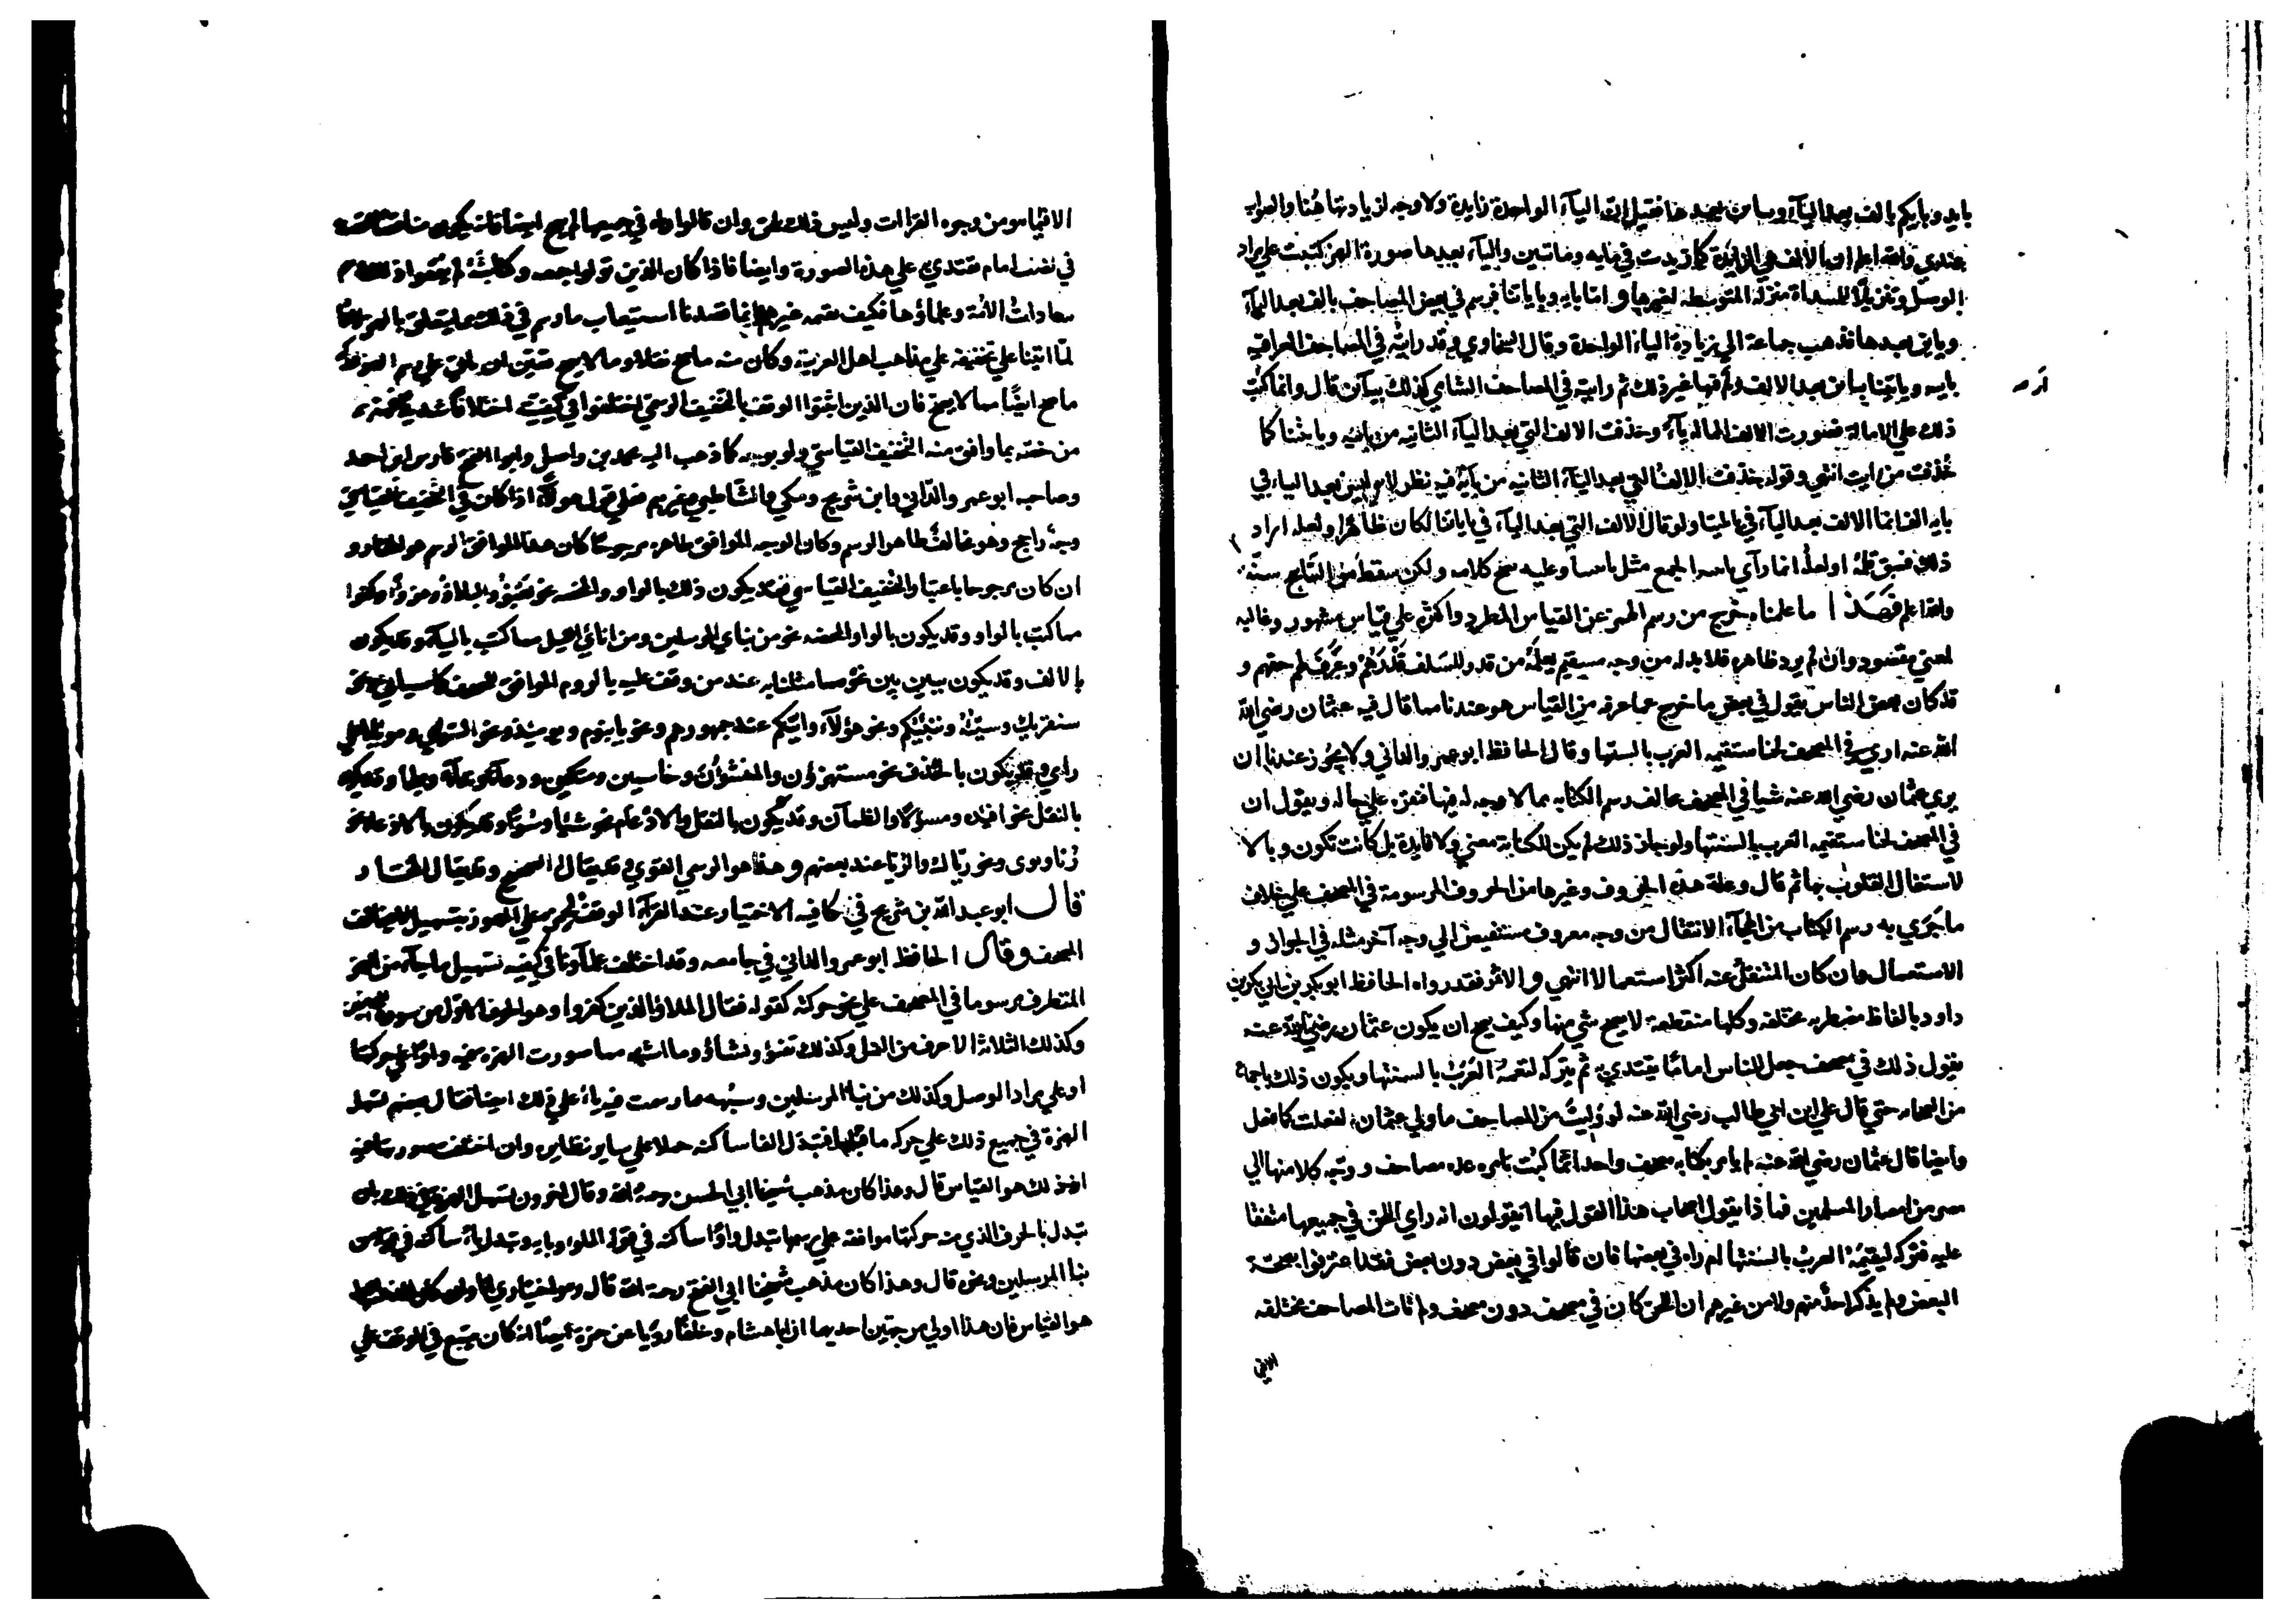 باييد وباييكم بالف بعد الياء وساين بعدها فقيل ان الياء الواحدة زايدة ولا وجه لزيادتها هنا والصواب
عندي والله اعلم ان الالف هي الزايدة كما زيدت في مايه وماتين والياء بعدها صورة الهمز كتبت علي مراد
الوصل وتنزيلا للمبتداة منزلة المتوسطه لغيرها واما بايه وباياتنا فرسم في بعض المصاحف بالف بعد الياء
وياين بعدها فذهب جماعة الي زيادة الياء الواحدة وقال السخاوي وقد رايته في المصاحف العراقيه
باييه وباييتنا بياين بعد الالف ولم ار فيها غير ذلك ثم رايته في المصاحف الشامي كذلك بيآين قال وانما كتب
ذلك علي الامالة فصورت الالف الممالة يآء وحذفت الالف التي بعد الياء الثانيه من باييه وباييتنا كما
حُذفت من ايت انتهي وقوله حذفت الالف التي بعد الياء الثانيه من بآيه فيه نظر لانه ليس بعد الياء في
بايه الف انما الالف بعد الياء في باياتنا ولو قال الالف التي بعد الياء في باياتنا لكان ظاهرا ولعله اراد
ذلك فسبق قلمه او لعله انما راي بايام الجمع مثل بايام الله وعليه يصح كلامه ولكن سقط من الناسخ سنة
والله اعلم فهذا ما علمناه خرج من رسم الهمز عن القياس المطرد واكثره علي قياس مشهور وغالبه
لمعني مقصود وان لم يرد ظاهره فلا بد له من وجه مستقيم يعلمه من قدر للسلف قدرهم وعرف لهم حقهم و
قد كان بعض الناس يقول في بعض ما خرج عما عرفه من القياس هو عندنا مما قال فيه عثمان رضي الله
الله عنه اري في المصحف لحنا ستقيمه العرب بالسنتها وقال الحافظ ابو عمرو الداني ولا يجوز عندنا ان
يري عثمان رضي الله عنه شيا في المصحف يخالف رسم الكتابه مما لا وجه له فيها فيقره علي حاله ويقول ان
في المصحف لحنا ستقيمه العرب بالسنتها ولو جاز ذلك لم يكن للكتابة معني ولا فايدة بل كانت تكون وبالا
لاشتغال القلوب بها ثم قال وعلة هذه الحروف وغيرها من الحروف المرسومة في المصحف علي خلاف
ما جري به رسم الكتاب من الهجاء الانتقال من وجه معروف مستفيض الي وجه آخر مثله في الجواز و
الاستعمال وان كان المنتقل عنه اكثر استعمالا انتهي والاثر فقد رواه الحافظ ابو بكر بن ابي
داود بالفاظ مضطربه مختلفه وكلها منقطعة لا يصح شي منها وكيف يصح ان يكون عثمان رضي الله عنه
يقول ذلك في مصحف جعل للناس اماما يقتدي به ثم يتركه لتقيمه العرب بالسنتها ويكون ذلك باجماع
من الصحابه حتي قال علي ابن ابي طالب رضي الله عنه لو وليت من المصاحف ما ولي عثمان لفعلت كما فعل
وايضا فان عثمان رضي الله عنه لم يامر بكتابه مصحف واحد انما كتب بامره عده مصاحف ووجه كلا منها الي
مصر من امصار المسلمين فماذا يقول اصحاب هذا القول فيها ايقولون انه راي اللحن في جميعها متفقا
عليه فتركه ليقيمه العرب بالسنتها ام راه في بعضها فان قالوا في بعض دون بعض فقد اعترفوا بصحة
البعض ولم يذكر احد منهم ولا من غيرهم ان اللحن كان في مصحف دون مصحف ولم تات المصاحف مختلفه
الا في
الا فيما هو من وجوه القراات وليس ذلك بلحن وان قالوا راه في جميعها لم يصح ايضا فانه يكون مناقضا لقصده
في نصب امام يقتدي به علي هذه الصورة وايضا فاذا كان الذين تولوا جمعه وكتابته لم يقيموا ذلك وهم
سادات الامة وعلماؤها فكيف يقيمه غيرهم وانما قصدنا استيعاب ما رسم في ذلك مما يتعلق بالهمز لانا
لما اتينا علي تخفيفه علي مذاهب اهل العربية وكان منه ما صح نقلا وما لا يصح تعين ان ناتي علي رسم الهمز لنذكر
ما صح ايضا مما لا يصح فان الذين اثبتوا الوقف بالتخفيف الرسمي اختلفوا في كيفيته اختلافا شديدا فمنهم
من خصه بما وافق منه التخفيف القياسي ولو بوجه كما ذهب اليه محمد بن واصل وابو الفتح فارس بن احمد
وصاحبه ابو عمرو والداني وابن شريح ومكي والشاطبي وغيرهم فعلي قول هولاء اذا كان في التخفيف القياسي
وجه راجح وهو مخالف ظاهر الرسم وكان الوجه الموافق ظاهره مرجوحا كان هذا الموافق الرسم هو المختار و
ان كان مرجوحا باعتبار التخفيف القياسي فقد يكون ذلك بالواو والمحضه نحو يعبؤا والبلاؤا وهزؤا وكفوا
مما كتب بالواو وقد يكون بالياء المحضه نحو من نباي المرسلين ومن اناي الليل مما كتب بالياء وقد يكون
بالالف وقد يكون ببين بين نحو ما مثلنا به عند من وقف عليه بالروم الموافق للمصحف كما سياتي ونحو
سنقريك وسيئه وننبئكم ونحو هؤلآء وائنكم عند جمهورهم ونحو يابنؤم ويوميذ ونحو السواي وموئلا علي
راي وقد يكون بالحذف نحو مستهزؤن والمنشؤن وخاسين ومتكين ودعآء ونداء وماء وقد يكون
بالنقل نحو افيده ومسؤلا والظمآن وقد يكون بالنقل والادغام نحو شيا وسوءا وقد يكون بالادغام نحو
رئيا وتؤي ونحو رؤياك والرؤيا عند بعضهم وهذا هو الرسمي القوي وقد يقال له الصحيح وقد يقال المختار
قال ابو عبد الله بن شريح في كافيه الاختيار عند القرآء الوقف لحمزه علي المهموز بتسهيل لا يخالف
المصحف وقال الحافظ ابو عمرو الداني في جامعه وقد اختلف علماؤنا في كيفيه تسهيل ما جآء من الهمز
المتطرف مرسوما في المصحف علي نحو حركته كقوله فقال الملاؤا الذين كفروا وهو الحرف الاول من سورة المومنين
وكذلك الثلاثة الاحرف من النمل وكذلك تفتؤ ونشاؤ وما اشبهه مما صورت الهمزه فيه واوا علي حركتها
او علي مراد الوصل وكذلك من نباي المرسلين وشبهه مما رسمت فيه ياء علي ذلك ايضا فقال بعضهم تسهل
الهمزة في جميع ذلك علي حركه ما قبلها فتبدل الفا ساكنه حملا علي ساير نظايره وان اختلفت صورتها فيه
اذ ذلك هو القياس قال وهذا كان مذهب شيخنا ابي الحسن رحمه الله وقال اخرون تسهل الهمزة في ذلك بان
تبدل بالحرف الذي منه حركتها موافقه علي رسمها تبدل واوا ساكنه في قوله الملوا وبابه وتبدل ياء ساكنه في قوله من
نباي المرسلين ونحوه قال وهذا كان مذهب شيخنا ابي الفتح رحمه الله قال وهو اختياري انا وان كان المذهب الاول
هو القياس فان هذا اولي من جهتين احديهما ان ابا هشام وخلفا رويا عن حمزة ايضا انه كان يتبع في الوقف علي